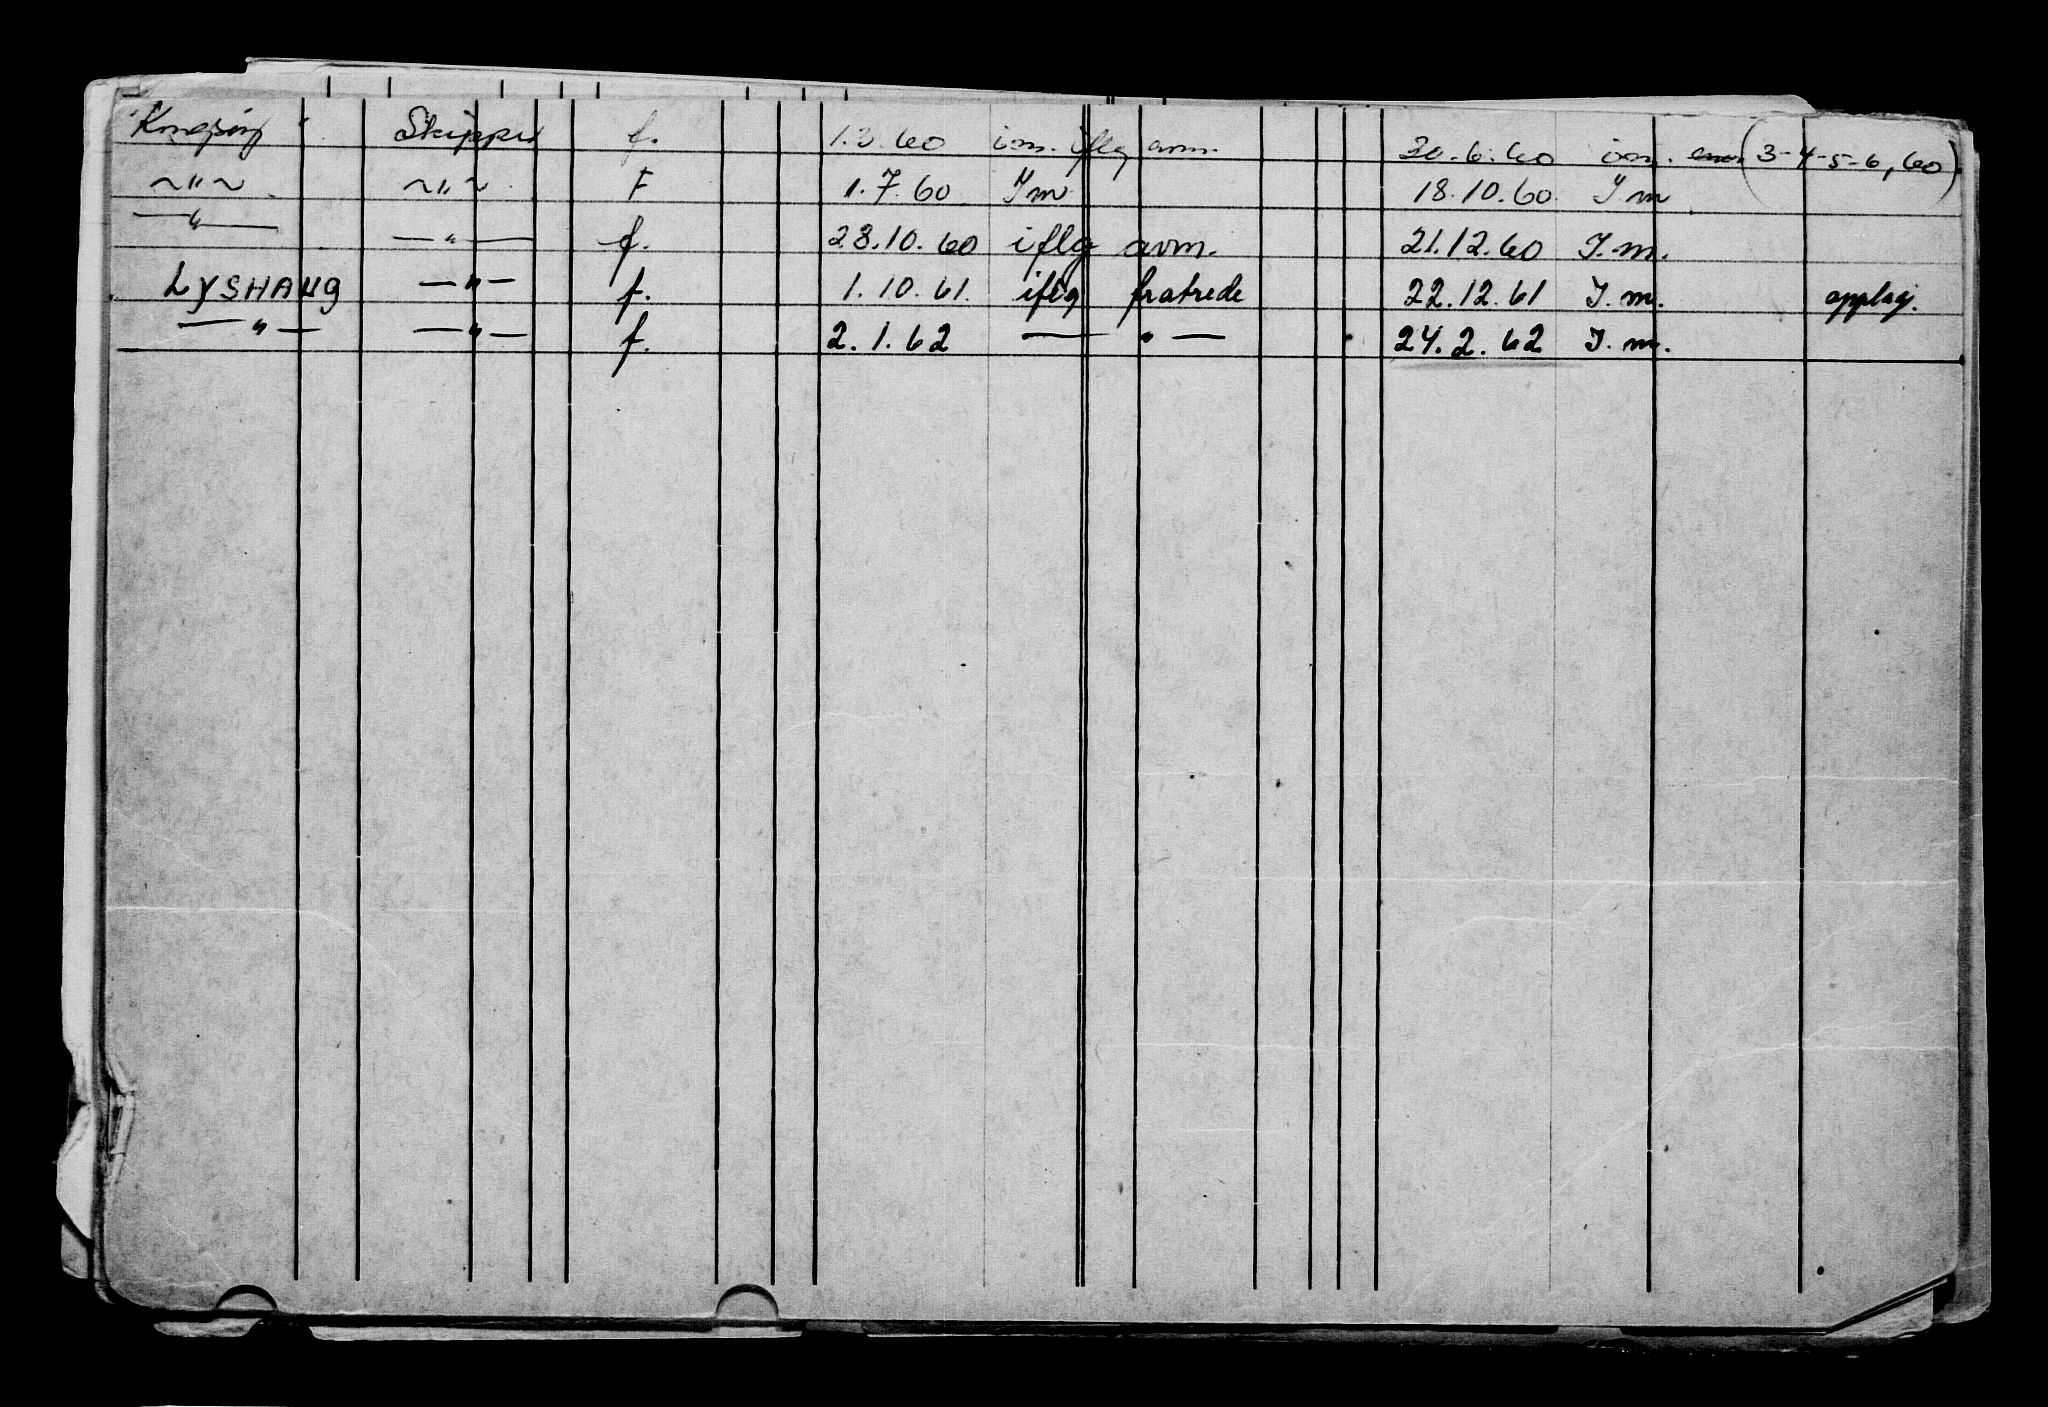 Skipper f. 1.3.60 i.m. iflg avm. 30.6.60 i.m. (3-4-5-6, 60)
~"~ ~"~ F 1.7.60 I m 18.10.60 I m
—"— —"— f. 28.10.60 iflg avm. 21.12.60 I. m.
LYSHAUG —"— f. 1.10.61. iflg fratrede 22.12.61 I. m. opplag.
—"— —"— f. 2.1.62 —"— 24.2.62 I. m.